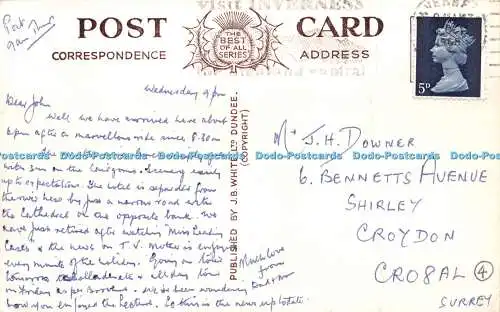 Post
9am Thurs
POST
CARD
CORRESPONDENCE
ADDRESS
THE
BEST
OF ALL
SERIES
VISIT INVERNESS
5D
Wednesday 9pm
Dear John
Well we have arrived here about
6pm after a marvellous ride since 8.30am
with sun on the Scenery
up to expectation. The hotel is separated from
the river here by just a narrow road with
the Cathedral on the opposite bank. We
have just retired after watching Miss
& the news on T.V. Mother is enjoying
every minute of the holiday. Going on
tomorrow & all day
on Friday as per Brochure. We've been wondering
how you enjoyed the So this is the news up to date.
Much love
from
Dad & Mum
PUBLISHED BY J.B. WHITE LTD DUNDEE.
(COPYRIGHT)
Mr J. H. DOWNER
6. BENNETTS AVENUE
SHIRLEY
CROYDON
CRO8AL 4
SURREY
Dodo-Postcards Dodo-Postcards Dodo-Postcards Dodo-Postcards Dodo-Postcards Dodo-Postcards